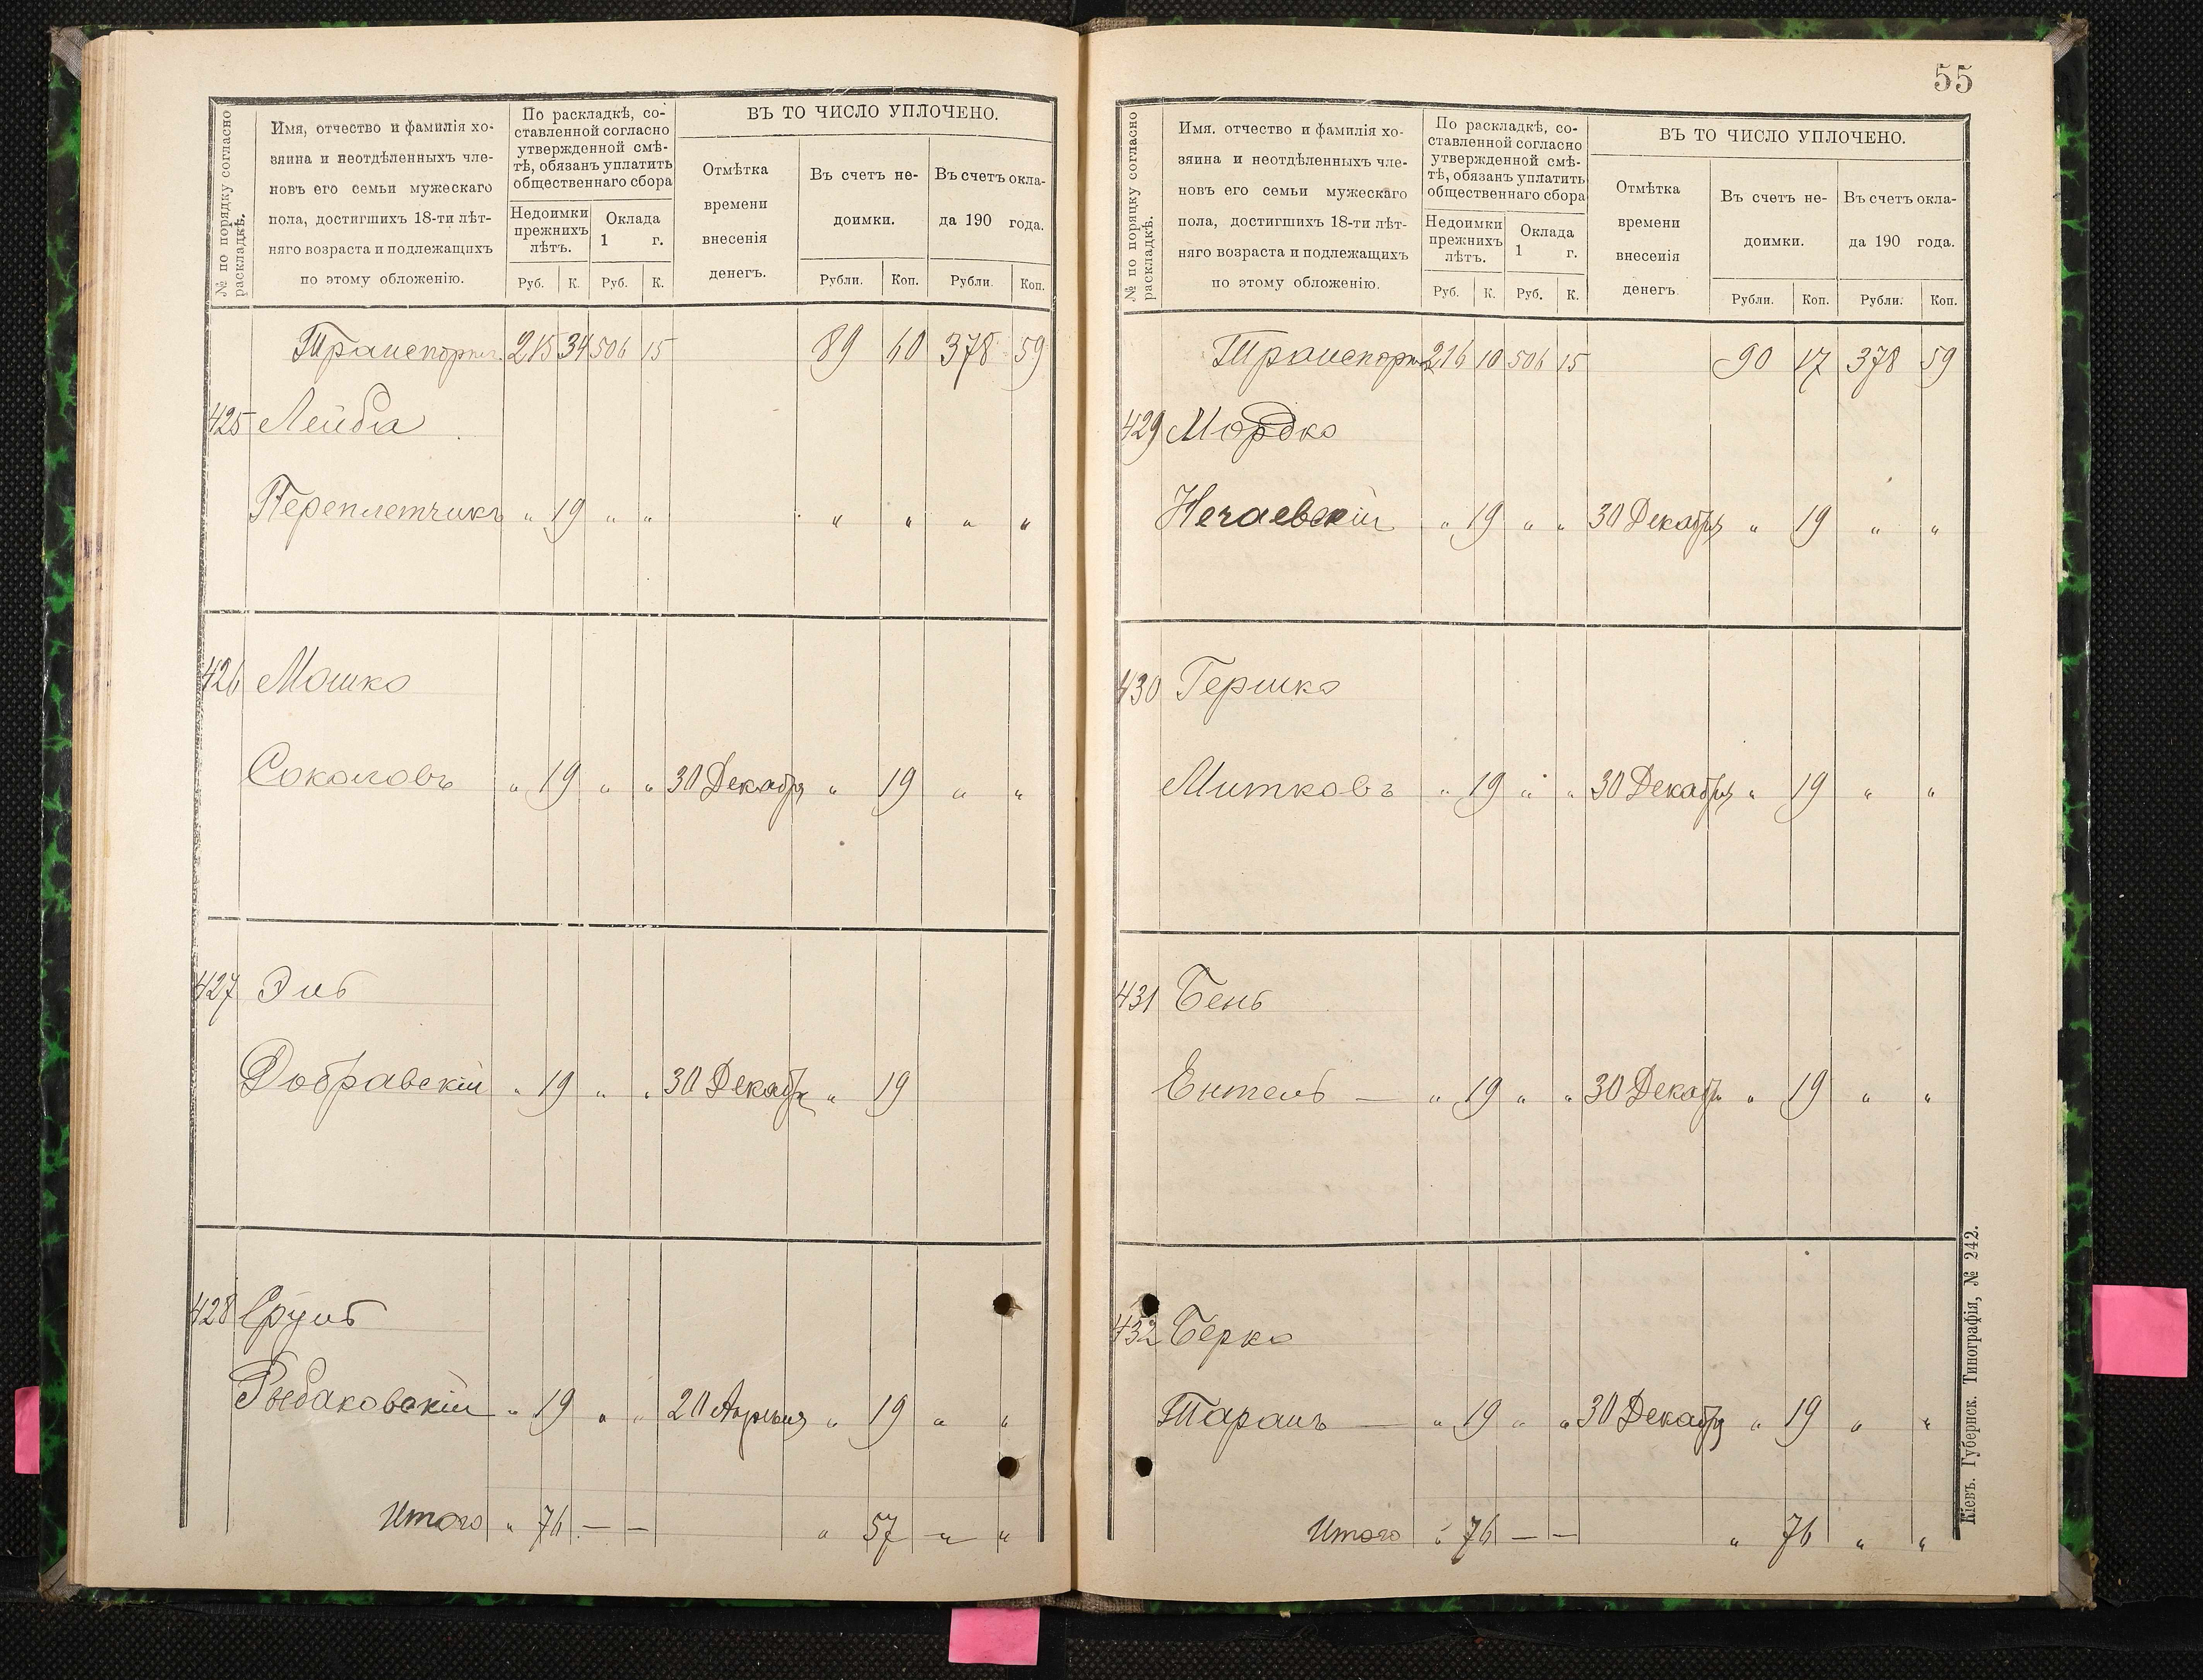 № по порядку согласно раскладкѣ.
Имя, отчество и фамилія хо-
зяина и неотдѣленныхъ чле-
новъ его семьи мужескаго
пола, достигшихъ 18-ти лѣт-
няго возраста и подлежащихъ
по этому обложенію.
По раскладкѣ, со-
ставленной согласно
утвержденной смѣ-
тѣ, обязанъ уплатить
общественнаго сбора
Недоимки
прежнихъ
лѣтъ.
Оклада
1 г.
Руб. К. Руб. К.
ВЪ ТО ЧИСЛО УПЛОЧЕНО.
Отмѣтка
времени
внесенія
денегъ.
Въ счетъ не-
доимки.
Въ счетъ окла-
да 190 года.
Рубли. Коп. Рубли. Коп.
Транспорт. 215 34 506 15 89 60 378 59
425 Лейба
Переплетчикъ " 19 " " " " " "
426 Мошко
Соколовъ " 19 " " 30 Декабря " 19 " "
427 Эль
Добравскій " 19 " " 30 Декабр " 19
428 Сруль
Рыбаковскій " 19 " " 20 Апрѣля " 19 " "
Итого " 76 — — " 57 " "
55
№ по порядку согласно раскладкѣ.
Имя. отчество и фамилія хо-
зяина и неотдѣленныхъ чле-
новъ его семьи мужескаго
пола, достигшихъ 18-ти лѣт-
няго возраста и подлежащихъ
по этому обложенію.
По раскладкѣ, со-
ставленной согласно
утвержденной смѣ-
тѣ, обязанъ уплатить
общественнаго сбора
Недоимки
прежнихъ
лѣтъ.
Оклада
1 г.
Руб. К. Руб. К.
ВЪ ТО ЧИСЛО УПЛОЧЕНО.
Отмѣтка
времени
внесенія
денегъ
Въ счетъ не-
доимки.
Въ счетъ окла-
да 190 года.
Рубли. Коп. Рубли. Коп.
Транспорт 216 10 506 15 90 17 378 59
429 Мордко
Нечаевскій " 19 " " 30 Декабря " 19 " "
430 Гершко
Митковъ " 19 " " 30 Декабря " 19 " "
431 Бень
Ентель — " 19 " " 30 Декабр " 19 " "
432 Берко
Таранъ — " 19 " " 30 Декабря " 19 " "
Итого " 76 — — " 76 " "
Кіевъ. Губернск. Типографія, № 242.